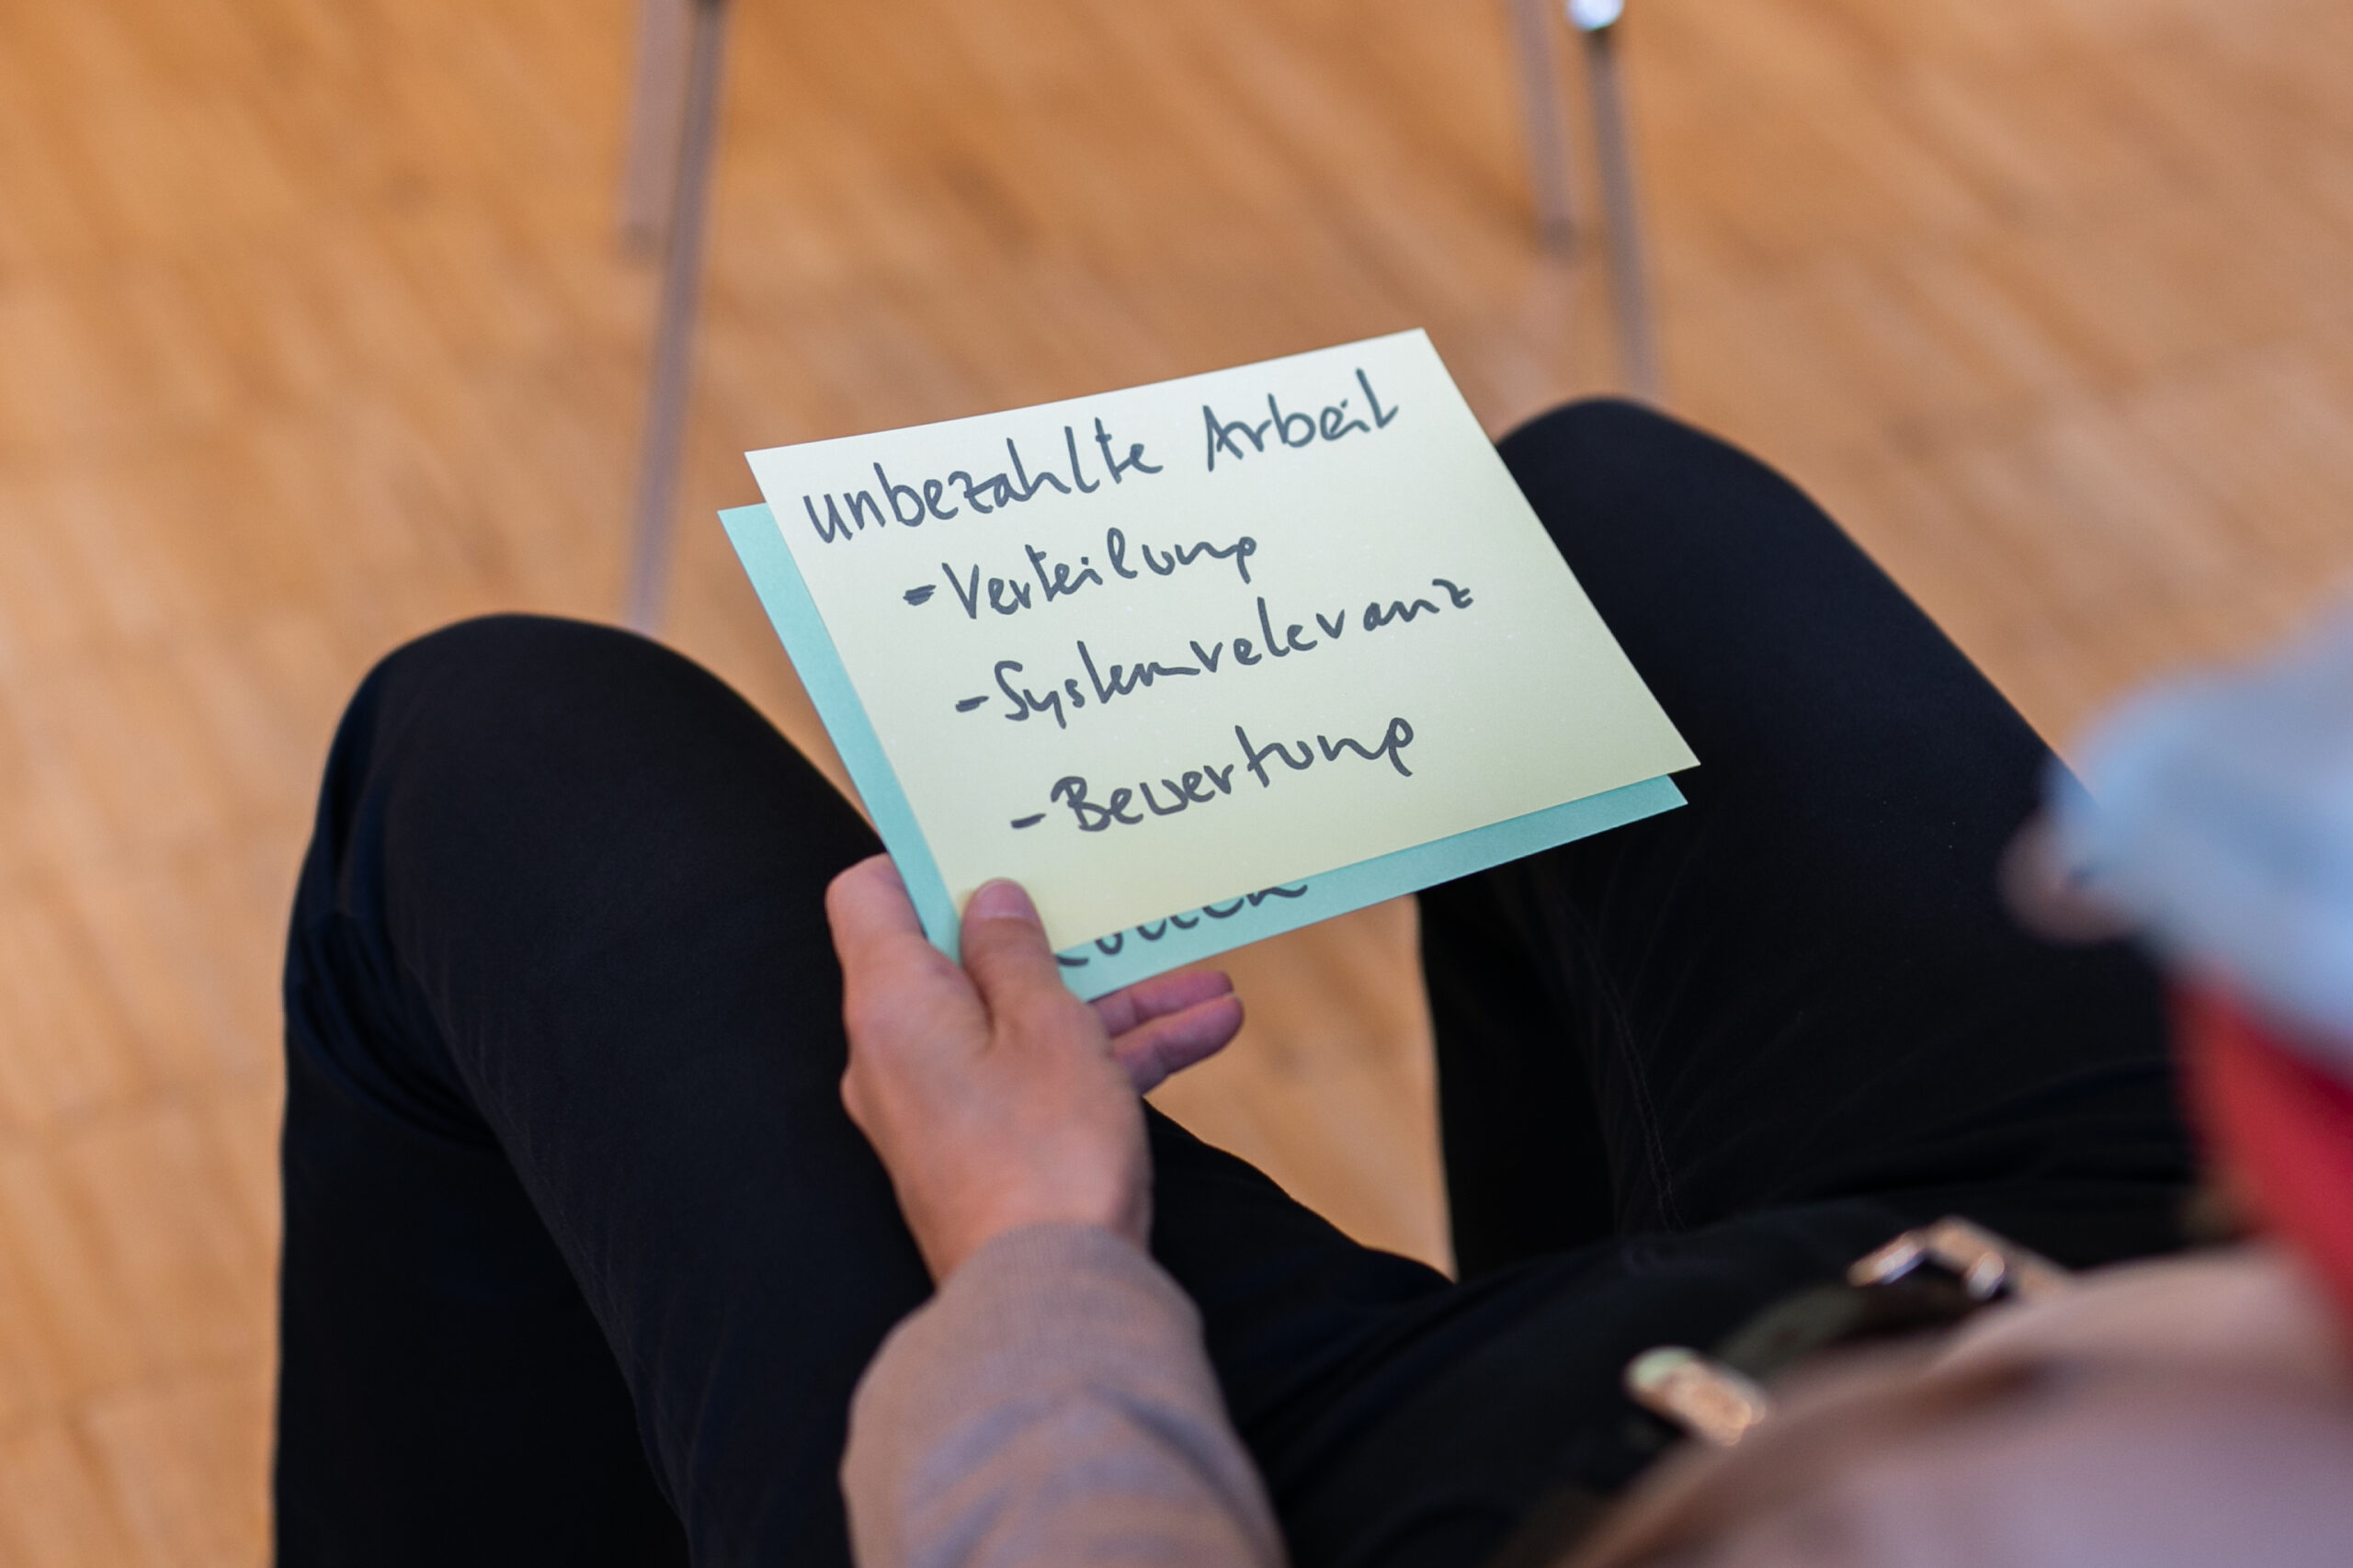 unbezahlte Arbeit
- Verteilung
- Systemrelevanz
- Bewertung